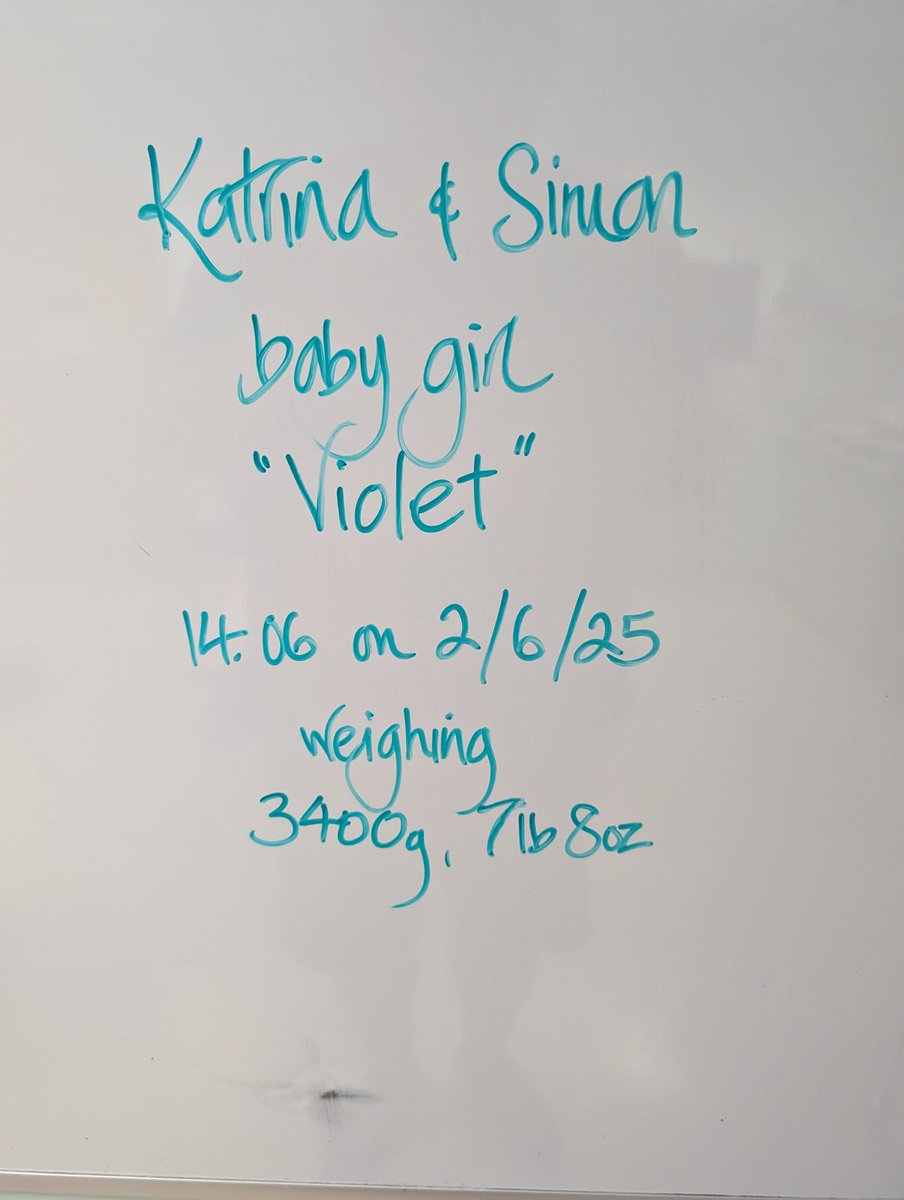 Katrina & Simon
baby girl
"Violet"
14:06 on 2/6/25
weighing
3400g, 7lb 8oz